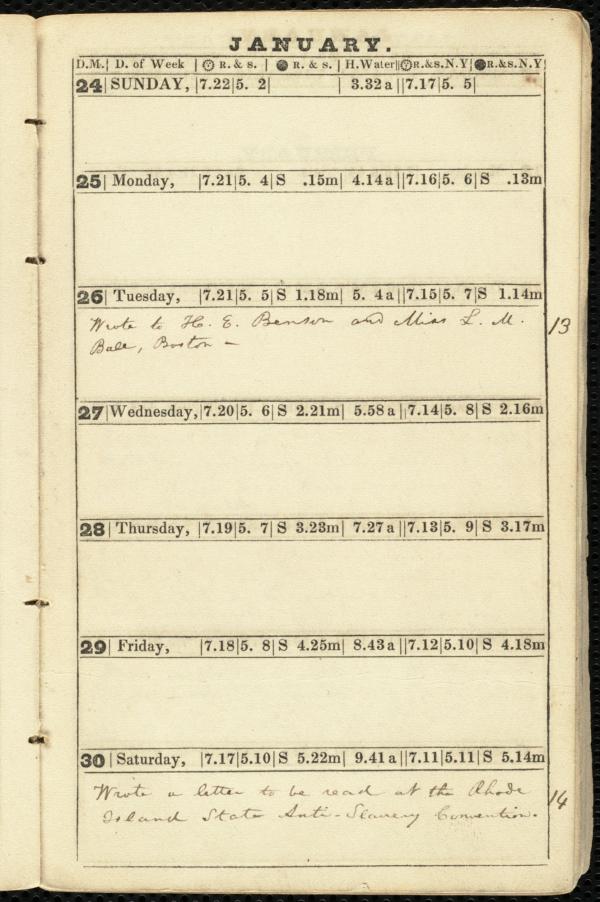 JANUARY.
D.M. D. of Week R. & s. R. & s. H.Water R.&s.N.Y R.&s.N.Y
24 SUNDAY, 7.22 5. 2 3.32 a 7.17 5. 5
25 Monday, 7.21 5. 4 S .15m 4.14a 7.16 5. 6 S .13m
26 Tuesday, 7.21 5. 5 S 1.18m 5. 4a 7.15 5. 7 S 1.14m
Wrote to H. E. Benson and Miss L. M. 13
Ball, Boston –
27 Wednesday, 7.20 5. 6 S 2.21m 5.58a 7.14 5. 8 S 2.16m
28 Thursday, 7.19 5. 7 S 3.23m 7.27a 7.13 5. 9 S 3.17m
29 Friday, 7.18 5. 8 S 4.25m 8.43a 7.12 5.10 S 4.18m
30 Saturday, 7.17 5.10 S 5.22m 9.41a 7.11 5.11 S 5.14m
Wrote a letter to be read at the Rhode 14
Island State Anti-Slavery Convention.